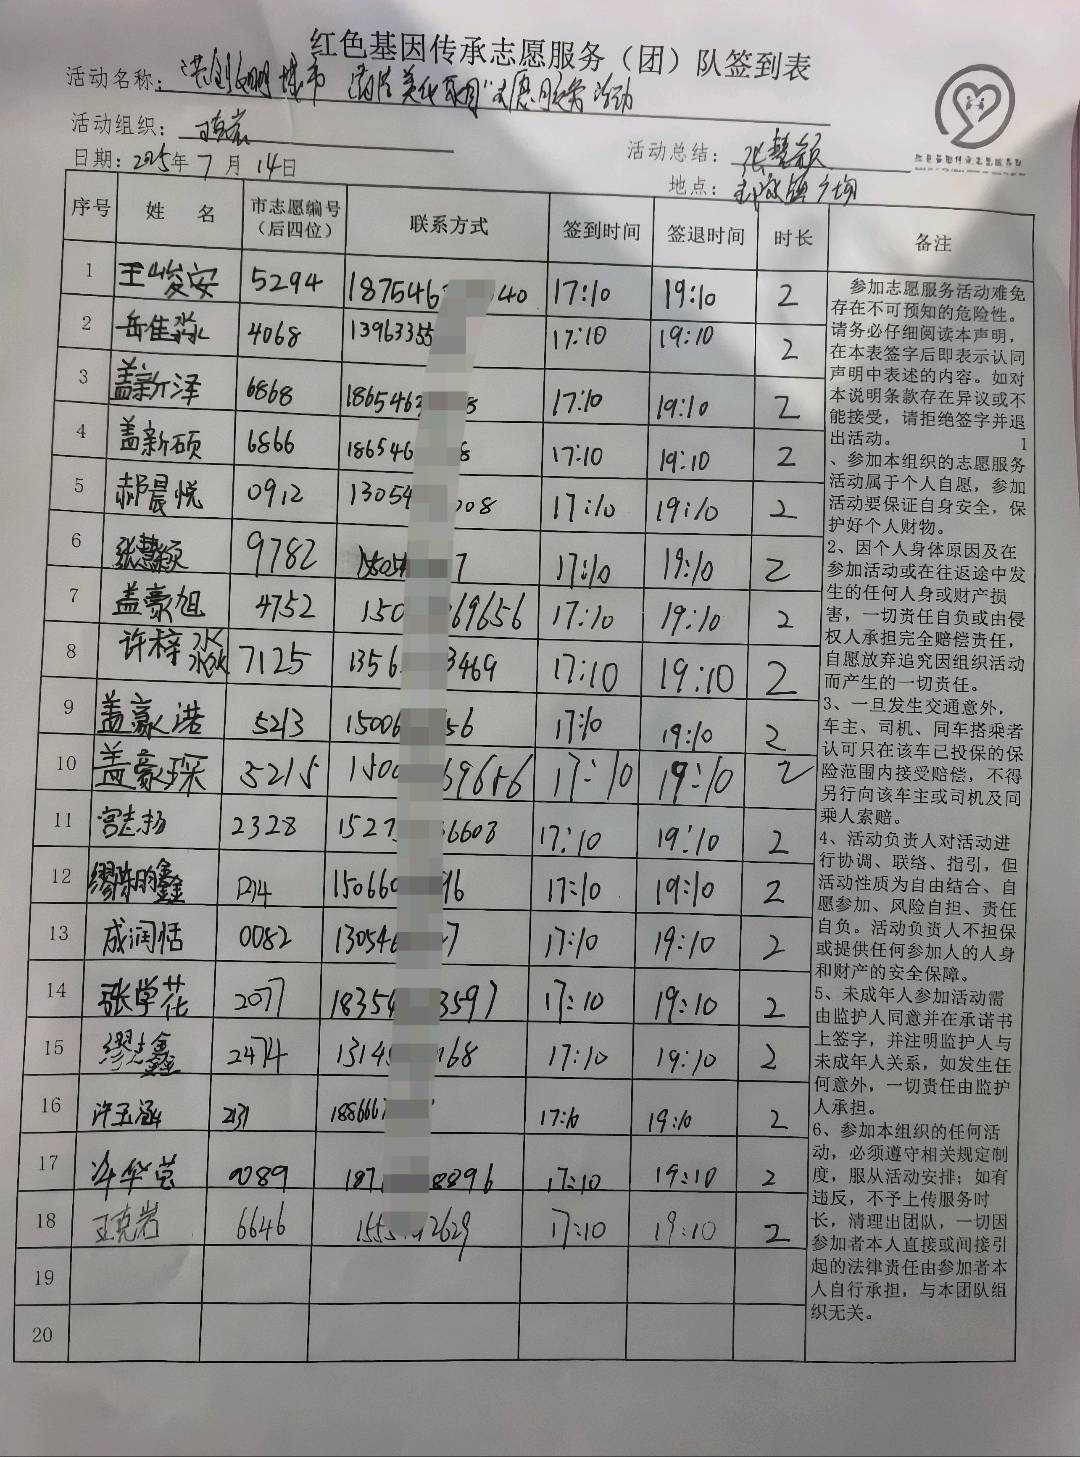 红色基因传承志愿服务（团）队签到表
活动名称："共创文明城市 清洁美化家园"志愿服务活动
活动组织：王克岩
活动总结：张慧颖
日期：2025年7月14日
地点：
序号 姓名 市志愿编号（后四位） 联系方式 签到时间 签退时间 时长 备注
1 王峻安 5294 187546 40 17:10 19:10 2
2 岳佳淼 4068 13963355 17:10 19:10 2
3 盖新泽 6868 1865463 8 17:10 19:10 2
4 盖新硕 6866 186546 8 17:10 19:10 2
5 郝晨悦 0912 13054 008 17:10 19:10 2
6 张慧颖 9782 15054 7 17:10 19:10 2
7 盖豪旭 4752 150 69656 17:10 19:10 2
8 许梓淼 7125 1356 3469 17:10 19:10 2
9 盖豪洪 5213 15006 56 17:10 19:10 2
10 盖豪琛 5215 1500 69656 17:10 19:10 2
11 宫志扬 2328 1527 6608 17:10 19:10 2
12 缪陈昀鑫 1214 150660 96 17:10 19:10 2
13 成润恬 0082 130546 7 17:10 19:10 2
14 张学花 2077 18354 3597 17:10 19:10 2
15 缪志鑫 2474 13145 168 17:10 19:10 2
16 许玉涵 2131 188666 17:10 19:10 2
17 许华总 0089 187 8896 17:10 19:10 2
18 王克岩 6646 1555 2629 17:10 19:10 2
19
20
参加志愿服务活动难免
存在不可预知的危险性。
请务必仔细阅读本声明，
在本表签字后即表示认同
声明中表述的内容。如对
本说明条款存在异议或不
能接受，请拒绝签字并退
出活动。 1
、参加本组织的志愿服务
活动属于个人自愿，参加
活动要保证自身安全，保
护好个人财物。
2、因个人身体原因及在
参加活动或在往返途中发
生的任何人身或财产损
害，一切责任自负或由侵
权人承担完全赔偿责任，
自愿放弃追究因组织活动
而产生的一切责任。
3、一旦发生交通意外，
车主、司机、同车搭乘者
认可只在该车已投保的保
险范围内接受赔偿，不得
另行向该车主或司机及同
乘人索赔。
4、活动负责人对活动进
行协调、联络、指引，但
活动性质为自由结合、自
愿参加、风险自担、责任
自负。活动负责人不担保
或提供任何参加人的人身
和财产的安全保障。
5、未成年人参加活动需
由监护人同意并在承诺书
上签字，并注明监护人与
未成年人关系，如发生任
何意外，一切责任由监护
人承担。
6、参加本组织的任何活
动，必须遵守相关规定制
度，服从活动安排；如有
违反，不予上传服务时
长，清理出团队，一切因
参加者本人直接或间接引
起的法律责任由参加者本
人自行承担，与本团队组
织无关。